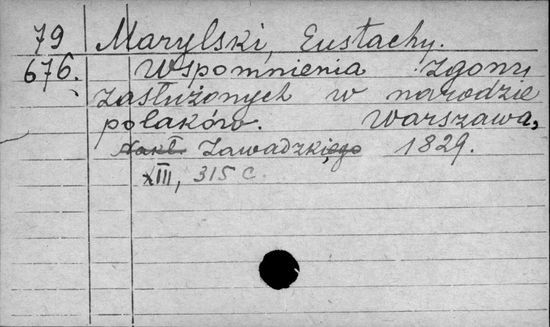 79 Marylski, Eustachy.
676. Wspomnienia zgonu
zasłużonych w narodzie
polaków. Warszawa,
Nakł. Zawadzkiego 1829.
XIII, 315 c.